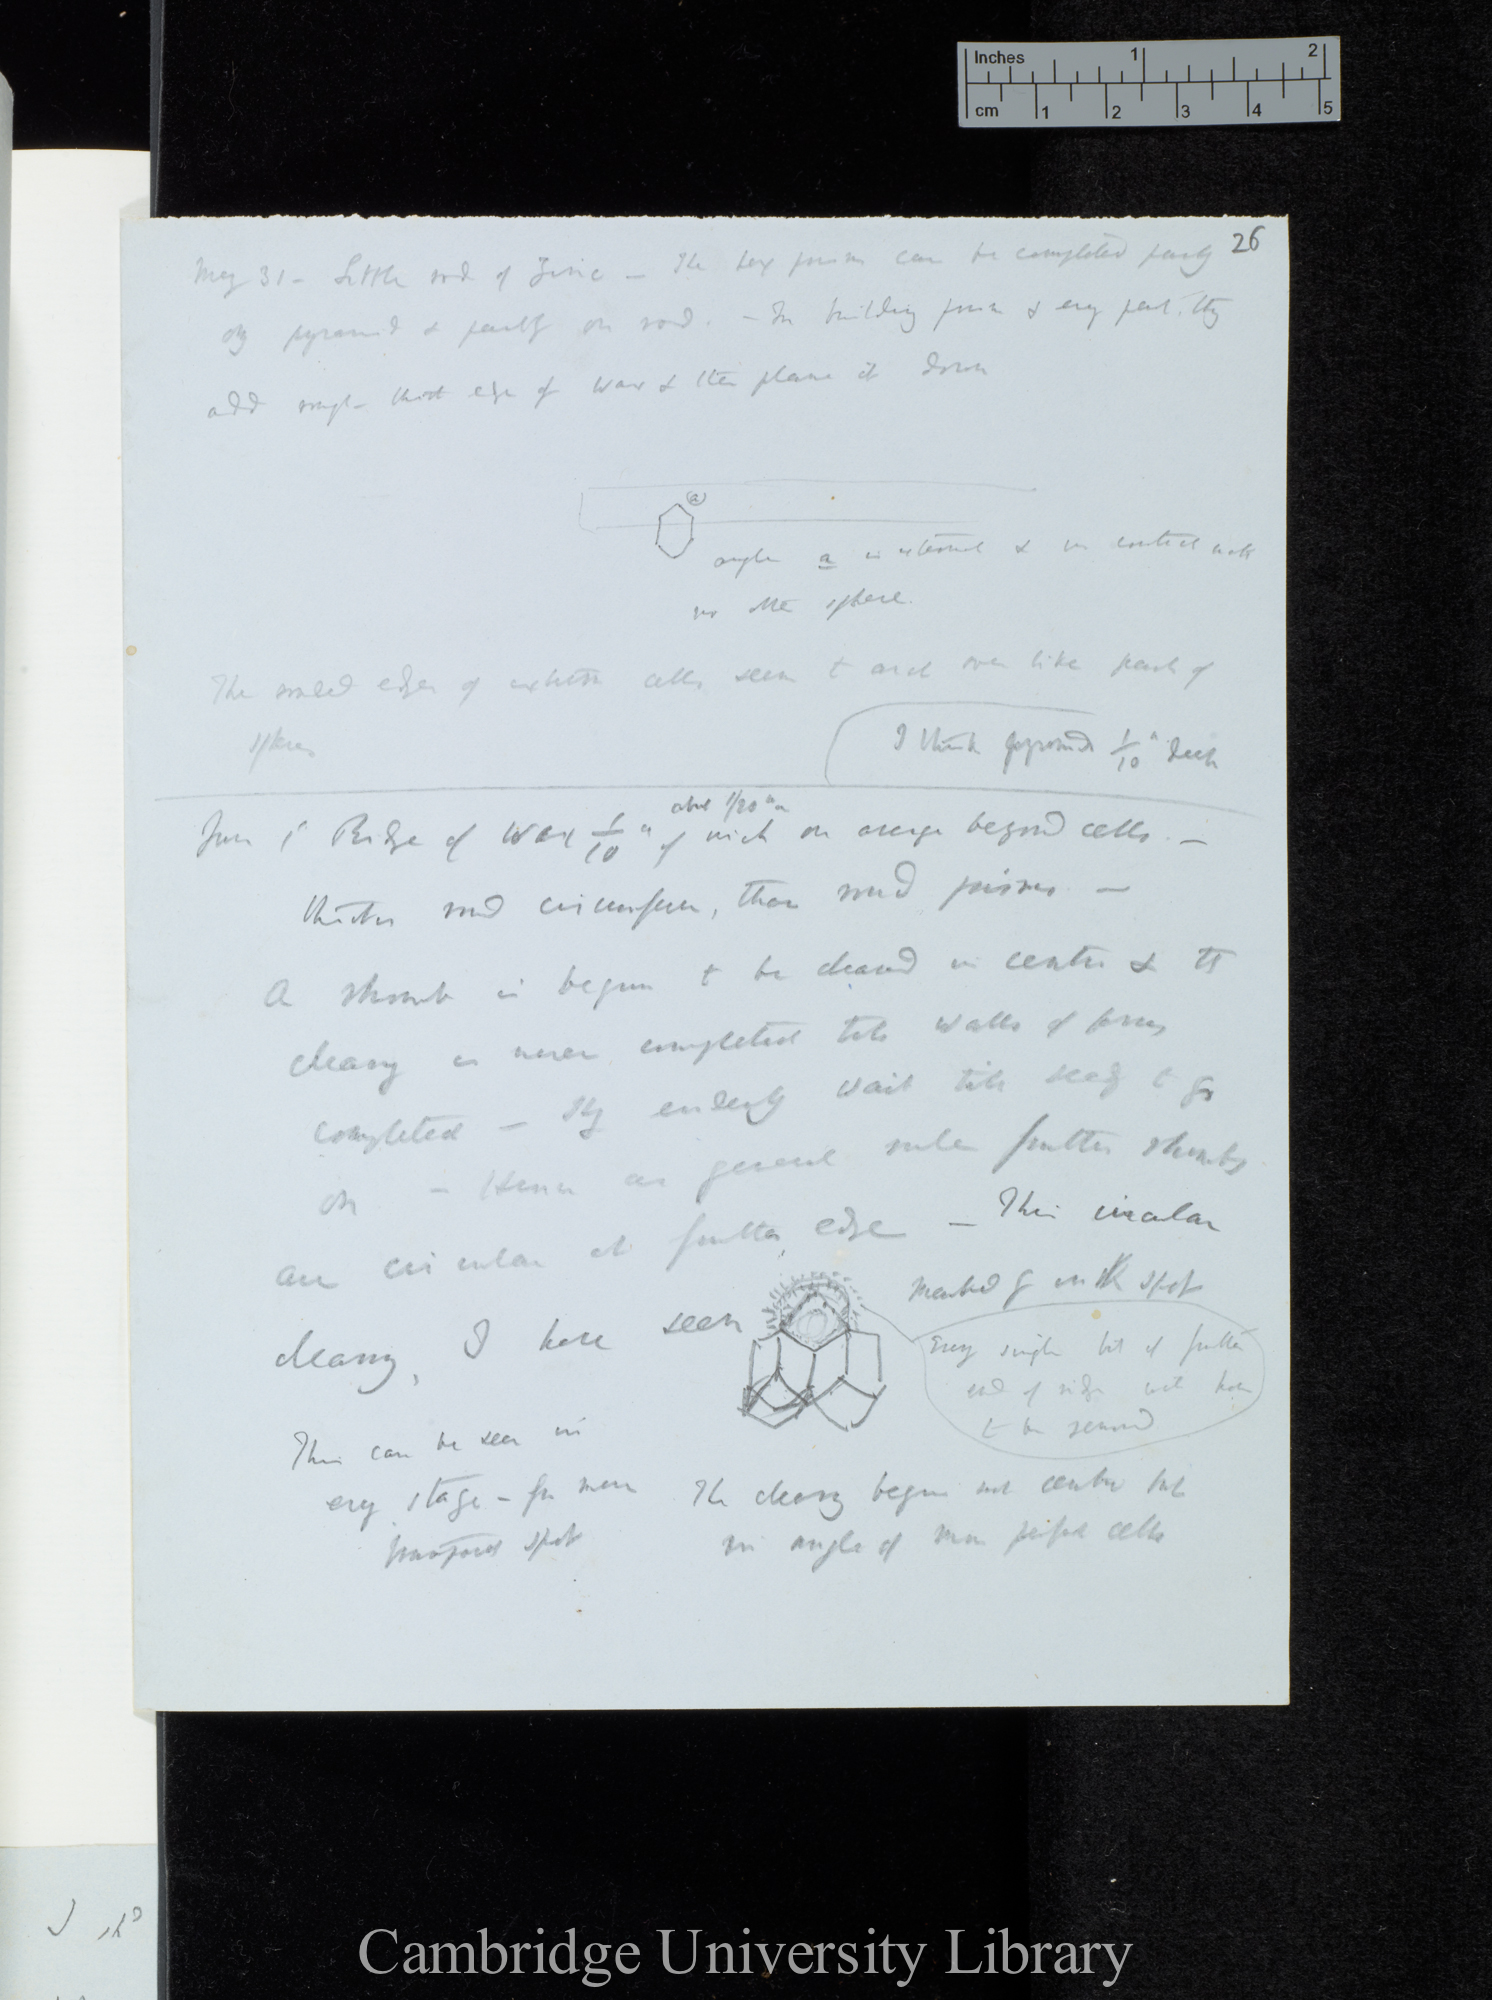 Inches 1 2
cm 1 2 3 4 5
26
May 31 - Little rod of Zinc - The hex prism can be completed partly
by pyramid & partly on rod. - In building prism & every part, they
add rough thick edge of wax & then plane it down
(a)
angle a is external & in contact with
no other sphere.
The round edges of cells seem to arch over like part of
spheres
I think pyramid 1/10" deep
about 1/20"
June 1' Ridge of Wax 1/10" of inch on average beyond cells. -
thicker round circumference, than round prisms -
A rhomb is begun to be cleared in centre & the
clearing is never completed till walls of prism
completed - They evidently wait till ready to go
on - Hence as general rule further rhombs
are circular at further edge - This circular
marked G in K spot
clearing, I have seen
Every single bit of further
end of ridge will have
to be removed
This can be seen in
every stage - for more
spot
The clearing begun not centre but
in angle of more perfect cells
I
Cambridge University Library